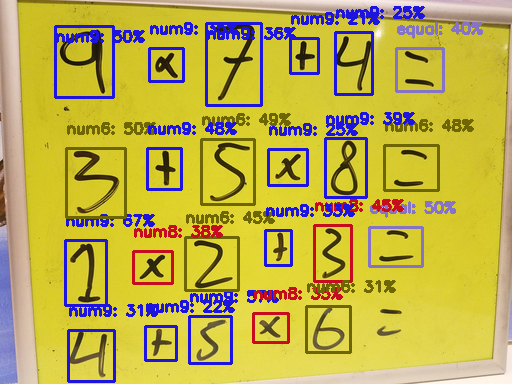 num9: 50% num9: num9: 36% num9: 21% num9: 25% equal: 40%
9 × 7 + 4 =
num6: 50% num9: 48% num6: 49% num9: 25% num9: 39% num6: 48%
3 + 5 × 8 =
num9: 67% num8: 38% num6: 45% num9: num8: 45% equal: 50%
1 × 2 + 3 =
num9: 31% num9: 22% num9: num8: 35% num6: 31%
4 + 5 × 6 =